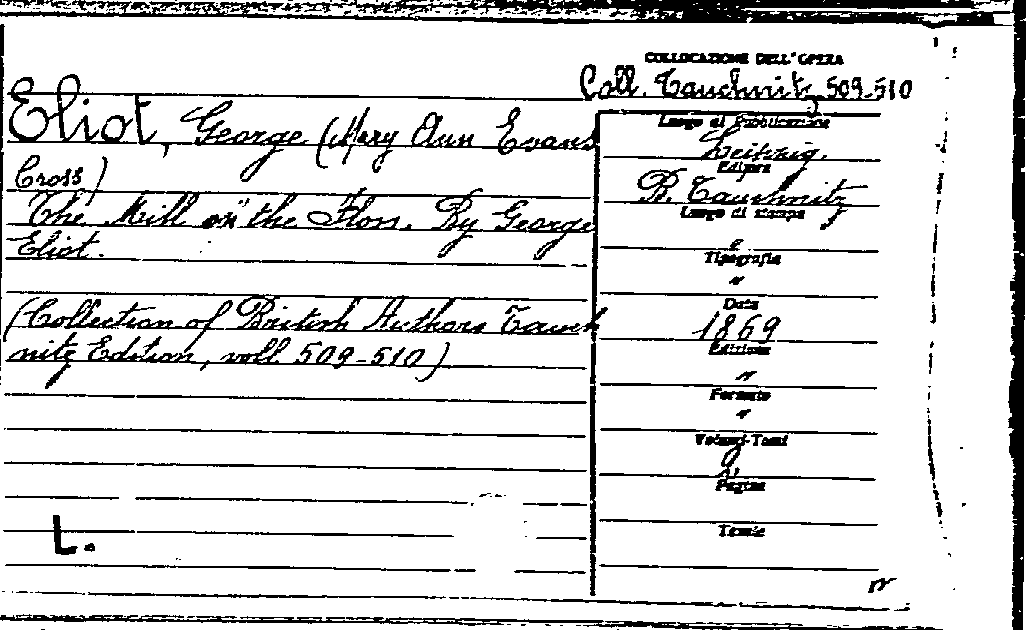 COLLOCAZIONE DELL'OPERA
Coll. Tauchnitz 509-510
Eliot, George (Mary Ann Evans
Cross)
The Mill on the Floss. By George
Eliot.
(Collection of British Authors Tauch
nitz Edition, voll 509-510)
L.
Luogo di Pubblicazione
Leipzig.
Editore
B. Tauchnitz
Luogo di stampa
Tipografia
"
Data
1869
Edizione
"
Formato
"
Volumi-Tomi
2
Pagine
Tavole